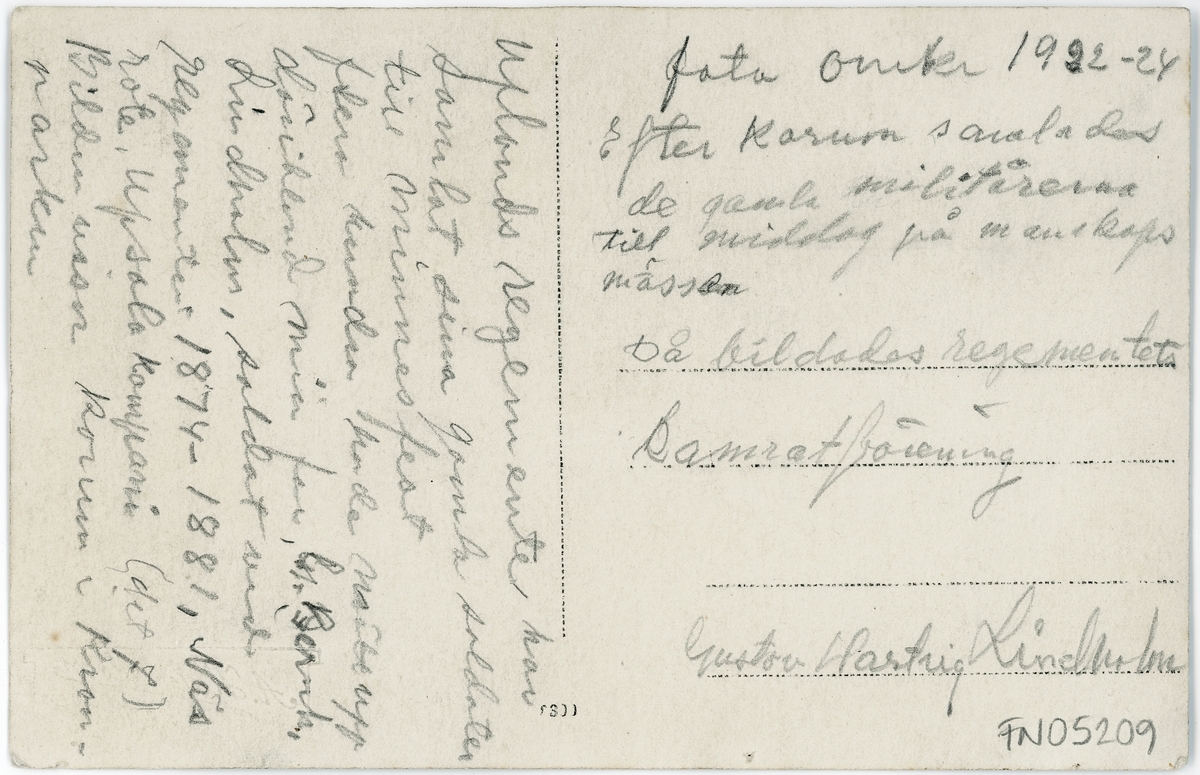 Uplands regemente, har
samlat sina gamla soldater
till minnesfest
flera hundra hade
min far,
Lindholm, soldat vid
regementet 1874-1881, Näs
rote, Upsala kompani (det 7)
Bilden visar korum i Kron-
parken
foto omkr 1922-24
Efter Korum samlades
de gamla militärerna
till middag på manskaps
mässen
Då bildades regementets
Kamratförening
Gustav Hartvig Lindholm
(311)
FN05209